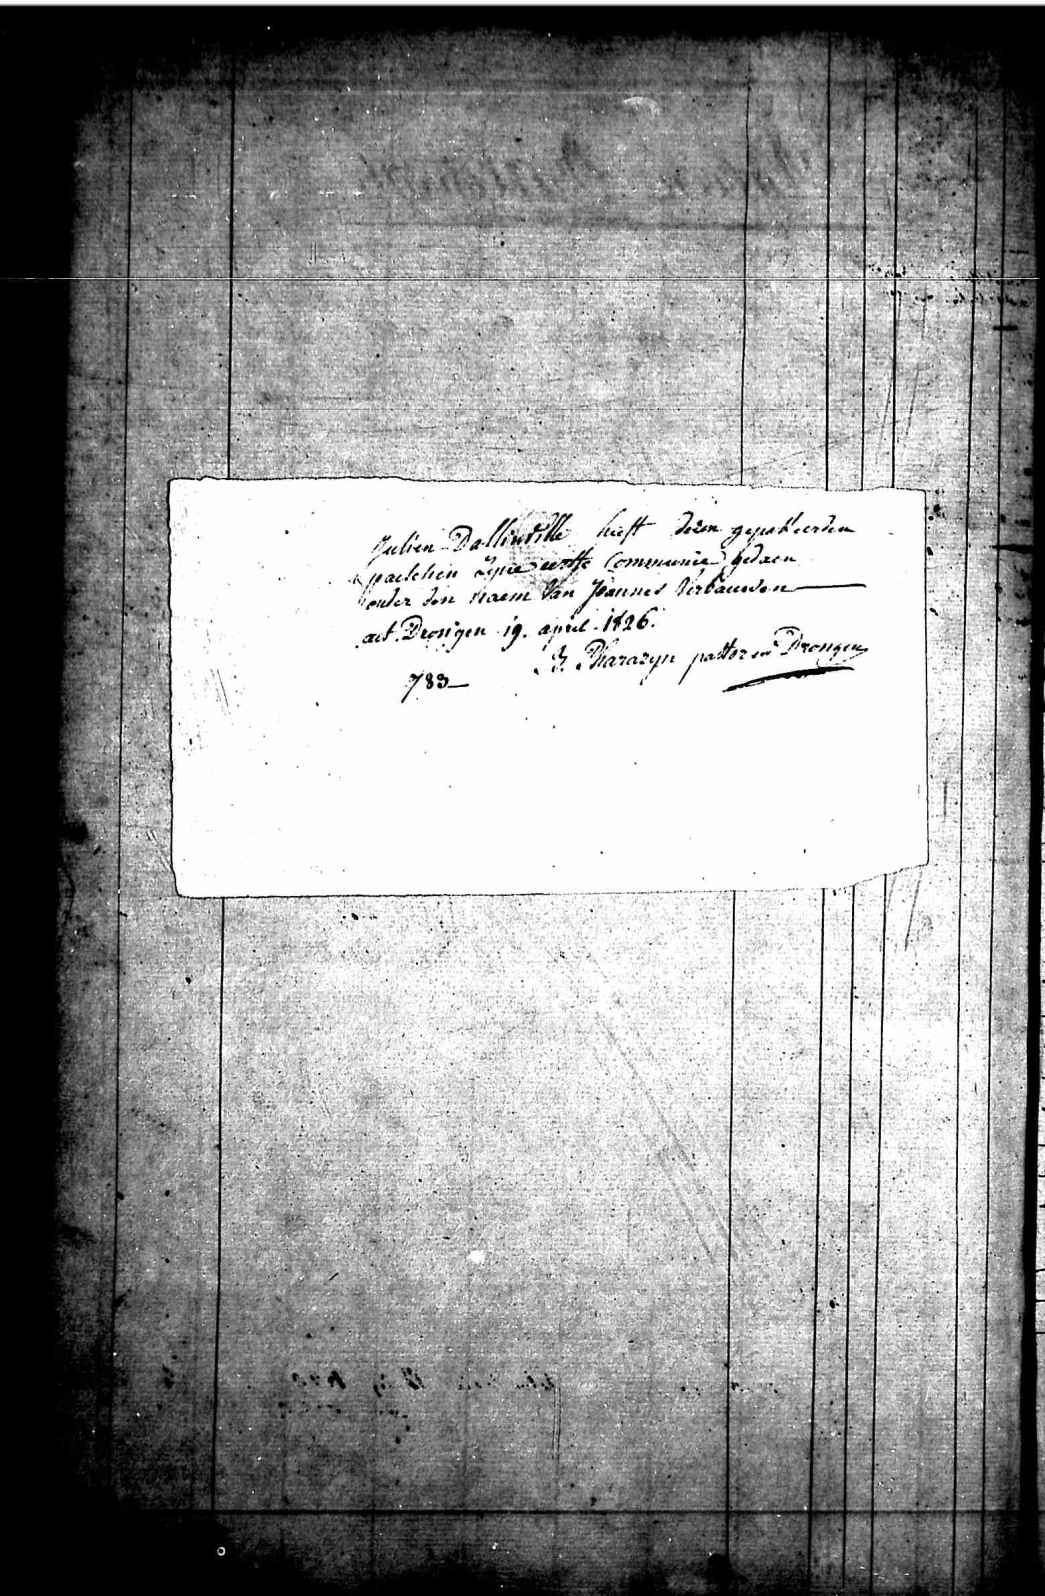 Julien Dallinville heeft desen gepasseerden
paeschen zijne eerste Communie gedaen
onder den naem van Joannes Verbauwen
act. Drongen 19. april 1826.
B. Pharazyn pastor in Drongen
783